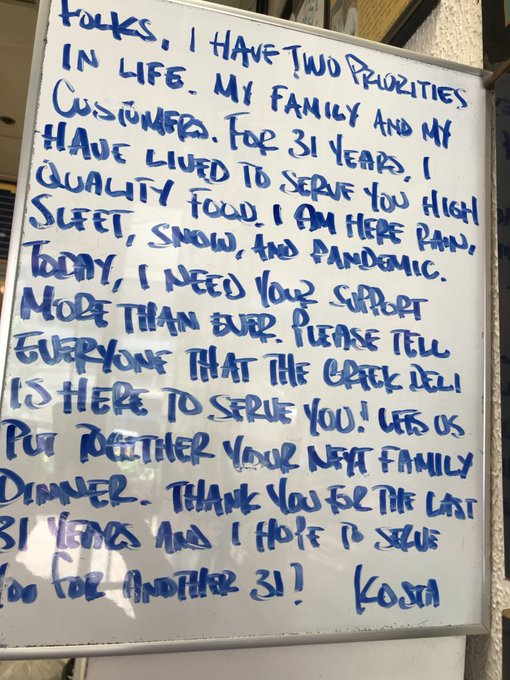 FOLKS, I HAVE TWO PRIORITIES
IN LIFE. MY FAMILY AND MY
CUSTOMERS. FOR 31 YEARS, I
HAVE LIVED TO SERVE YOU HIGH
QUALITY FOOD. I AM HERE RAIN,
SLEET, SNOW, AND PANDEMIC.
TODAY, I NEED YOUR SUPPORT
MORE THAN EVER. PLEASE TELL
EVERYONE THAT THE GREEK DELI
IS HERE TO SERVE YOU! LETS US
PUT TOGETHER YOUR NEXT FAMILY
DINNER. THANK YOU FOR THE LAST
31 YEARS AND I HOPE TO SERVE
YOU FOR ANOTHER 31! KOSTA